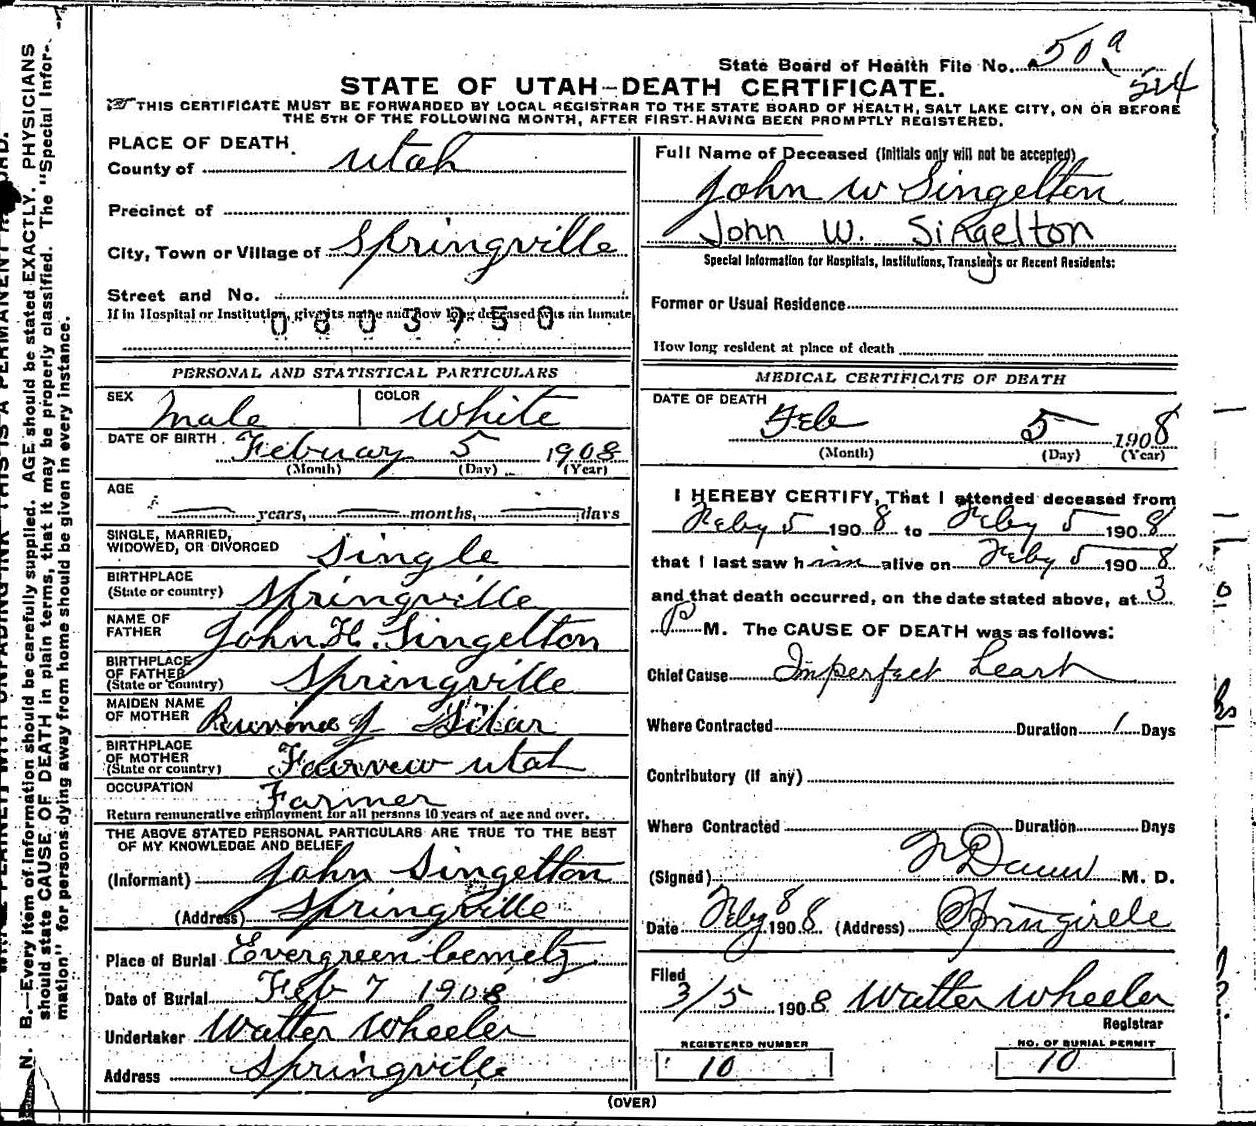 State Board of Health File No. 50a
514
STATE OF UTAH—DEATH CERTIFICATE.
THIS CERTIFICATE MUST BE FORWARDED BY LOCAL REGISTRAR TO THE STATE BOARD OF HEALTH, SALT LAKE CITY, ON OR BEFORE
THE 5TH OF THE FOLLOWING MONTH, AFTER FIRST HAVING BEEN PROMPTLY REGISTERED.
PLACE OF DEATH.
County of Utah
Precinct of
City, Town or Village of Springville
Street and No.
If in Hospital or Institution, give its name and how long deceased was an inmate
0603950
PERSONAL AND STATISTICAL PARTICULARS
SEX Male COLOR White
DATE OF BIRTH February 5 1908
(Month) (Day) (Year)
AGE
— years, — months, — days
SINGLE, MARRIED,
WIDOWED, OR DIVORCED Single
BIRTHPLACE
(State or country) Springville
NAME OF
FATHER John H. Singelton
BIRTHPLACE
OF FATHER
(State or country) Springville
MAIDEN NAME
OF MOTHER
BIRTHPLACE
OF MOTHER
(State or country) Fairview Utah
OCCUPATION Farmer
Return remunerative employment for all persons 10 years of age and over.
THE ABOVE STATED PERSONAL PARTICULARS ARE TRUE TO THE BEST
OF MY KNOWLEDGE AND BELIEF
(Informant) John Singelton
(Address) Springville
Place of Burial Evergreen Cemetg
Date of Burial Feb 7 1908
Undertaker Walter Wheeler
Address Springville
Full Name of Deceased (Initials only will not be accepted)
John W Singelton
John W. Singelton
Special Information for Hospitals, Institutions, Transients or Recent Residents:
Former or Usual Residence
How long resident at place of death
MEDICAL CERTIFICATE OF DEATH
DATE OF DEATH
Feb 5 1908
(Month) (Day) (Year)
I HEREBY CERTIFY, That I attended deceased from
Feby 5 1908 to Feby 5 1908
that I last saw him alive on Feby 5 1908
and that death occurred, on the date stated above, at 3
P M. The CAUSE OF DEATH was as follows:
Chief Cause Imperfect Heart
Where Contracted Duration 1 Days
Contributory (if any)
Where Contracted Duration Days
(Signed) M. D.
Date Feby 8 1908 (Address) Springville
Filed
3/5 1908 Walter Wheeler
Registrar
REGISTERED NUMBER
10
NO. OF BURIAL PERMIT
10
(OVER)
N. B.—Every item of information should be carefully supplied. AGE should be stated EXACTLY. PHYSICIANS
should state CAUSE OF DEATH in plain terms, that it may be properly classified. The "Special Infor-
mation" for persons dying away from home should be given in every instance.